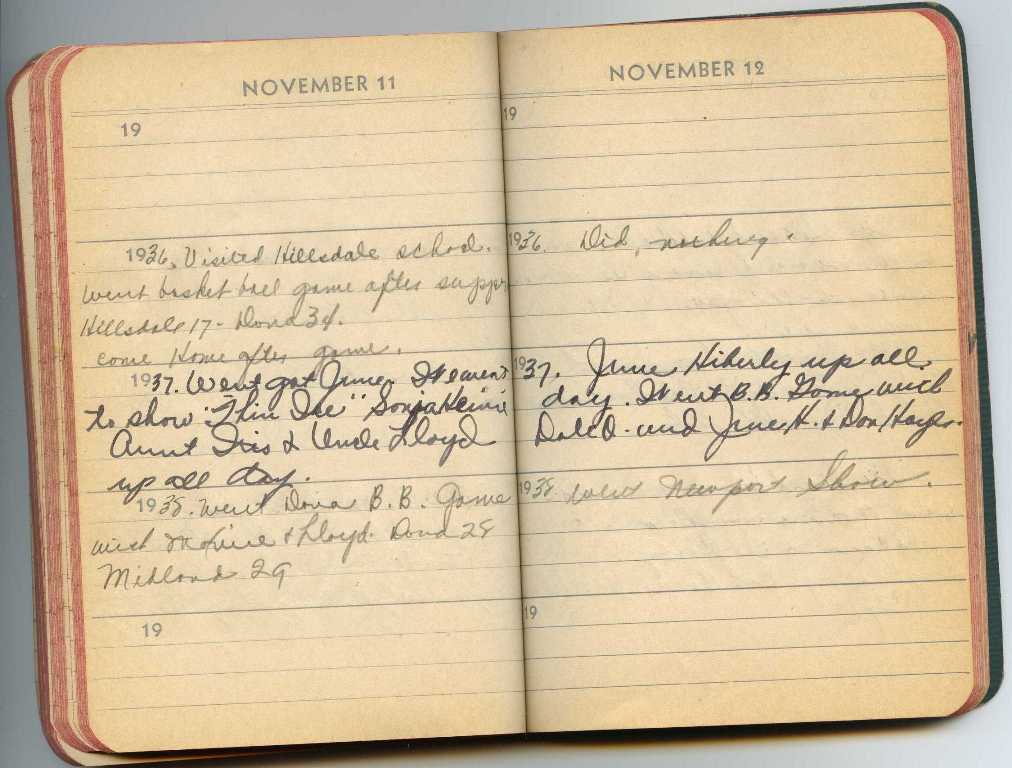 NOVEMBER 11
19
1936, Visited Hillsdale school.
Went basket ball game after supper
Hillsdale 17 - Dona 34.
come Home after game.
1937. Went got June. Went
to show "Thin Ice" Sonja Henie
Aunt Iris & Uncle Lloyd
up all day.
1938. Went Dona B.B. Game
with & Lloyd. Dona 28
Midland 29
19
NOVEMBER 12
19
1936. Did, nothing.
1937. June Hiberly up all
day. Went B.B. Game with
Dale O. and June H. & Don Hayles.
1938 Went Newport Show.
19